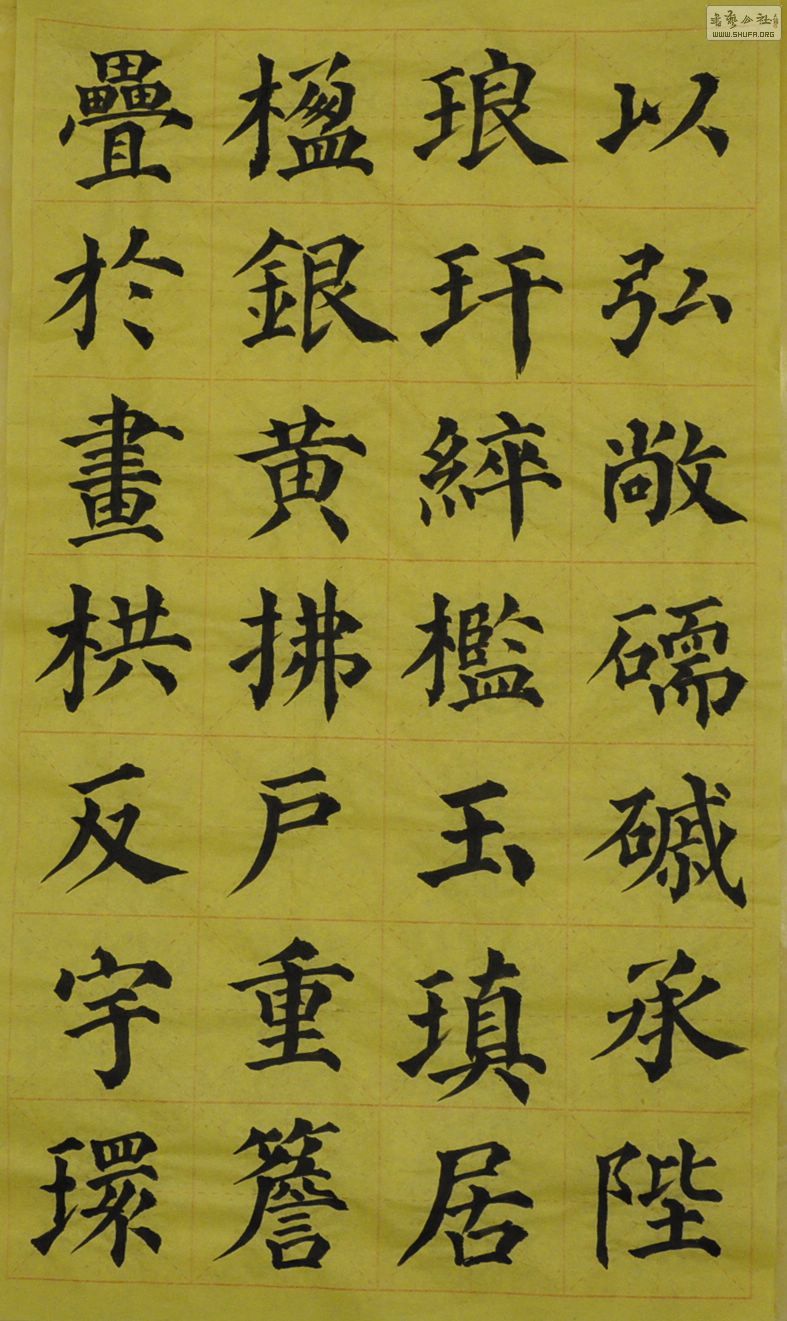 以弘敞礝磩承陛
琅玕綷檻玉瑱居
楹銀黄拂戶重簷
疊於畫栱反宇環
書藝公社
WWW.SHUFA.ORG